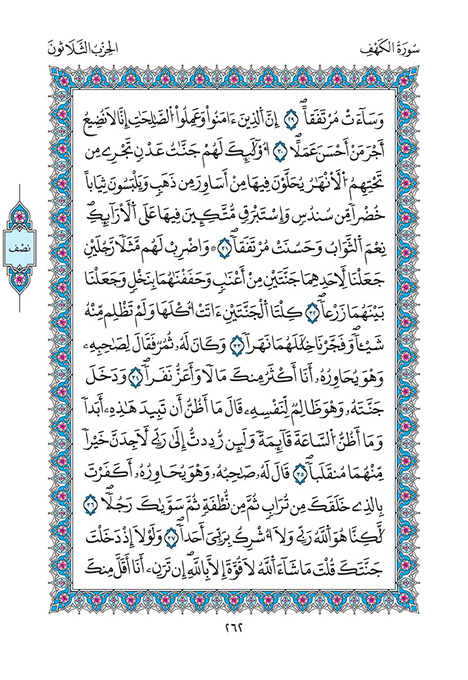 سُورَةُ الكَهْفِ
الحِزْبُ الثَّلَاثُونَ
وَسَآءَتْ مُرْتَفَقاًۖ ٢٩ إِنَّ اَ۬لذِينَ ءَامَنُواْ وَعَمِلُواْ اُ۬لصَّٰلِحَٰتِ إِنَّا لَا نُضِيعُ
أَجْرَ مَنْ أَحْسَنَ عَمَلاًۖ ٣٠ ا۟وْلَٰٓئِكَ لَهُمْ جَنَّٰتُ عَدْنٖ تَجْرِے مِن
تَحْتِهِمُ اُ۬لْأَنْهَٰرُ يُحَلَّوْنَ فِيهَا مِنْ أَسَاوِرَ مِن ذَهَبٖ وَيَلْبَسُونَ ثِيَاباً
خُضْراٗ مِّن سُندُسٖ وَإِسْتَبْرَقٖ مُّتَّكِـِٕينَ فِيهَا عَلَي اَ۬لْأَرَآئِكِۖ
نِعْمَ اَ۬لثَّوَابُ وَحَسُنَتْ مُرْتَفَقاًۖ ٣١ ۞وَاضْرِبْ لَهُم مَّثَلاٗ رَّجُلَيْنِ
جَعَلْنَا لِأَحَدِهِمَا جَنَّتَيْنِ مِنْ أَعْنَٰبٖ وَحَفَفْنَٰهُمَا بِنَخْلٖ وَجَعَلْنَا
نصف
بَيْنَهُمَا زَرْعاًۖ ٣٢ كِلْتَا اَ۬لْجَنَّتَيْنِ ءَاتَتُ ا۟كْلَهَا وَلَمْ تَظْلِم مِّنْهُ
شَيْـٔاٗۖ وَفَجَّرْنَا خِلَٰلَهُمَا نَهَراٗ ٣٣ وَكَانَ لَهُۥ ثُمُرٞ فَقَالَ لِصَٰحِبِهِۦ
وَهُوَ يُحَاوِرُهُۥٓ أَنَا أَكْثَرُ مِنكَ مَالاٗ وَأَعَزُّ نَفَراٗۖ ٣٤ وَدَخَلَ
جَنَّتَهُۥ وَهُوَ ظَالِمٞ لِّنَفْسِهِۦ قَالَ مَا أَظُنُّ أَن تَبِيدَ هَٰذِهِۦٓ أَبَداٗ
وَمَا أَظُنُّ اُ۬لسَّاعَةَ قَآئِمَةٗ وَلَئِن رُّدِدتُّ إِلَىٰ رَبِّے لَأَجِدَنَّ خَيْراٗ
مِّنْهُمَا مُنقَلَباٗۖ ٣٥ قَالَ لَهُۥ صَاحِبُهُۥ وَهُوَ يُحَاوِرُهُۥٓ أَكَفَرْتَ
بِالذِے خَلَقَكَ مِن تُرَابٖ ثُمَّ مِن نُّطْفَةٖ ثُمَّ سَوَّيٰكَ رَجُلاٗۖ ٣٦
لَّٰكِنَّا هُوَ اَ۬للَّهُ رَبِّے وَلَا أُشْرِكُ بِرَبِّيَ أَحَداٗۖ ٣٧ وَلَوْلَا إِذْ دَخَلْتَ
جَنَّتَكَ قُلْتَ مَا شَآءَ اَ۬للَّهُ لَا قُوَّةَ إِلَّا بِاللَّهِۖ إِن تَرَنِۦٓ أَنَا أَقَلَّ مِنكَ
٢٦٢